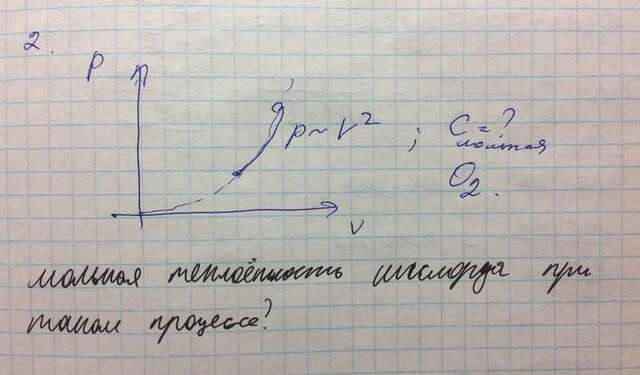 2.
P
p~V²
; C = ?
мольная
O₂.
V
мольная теплоёмкость кислорода при
таком процессе?